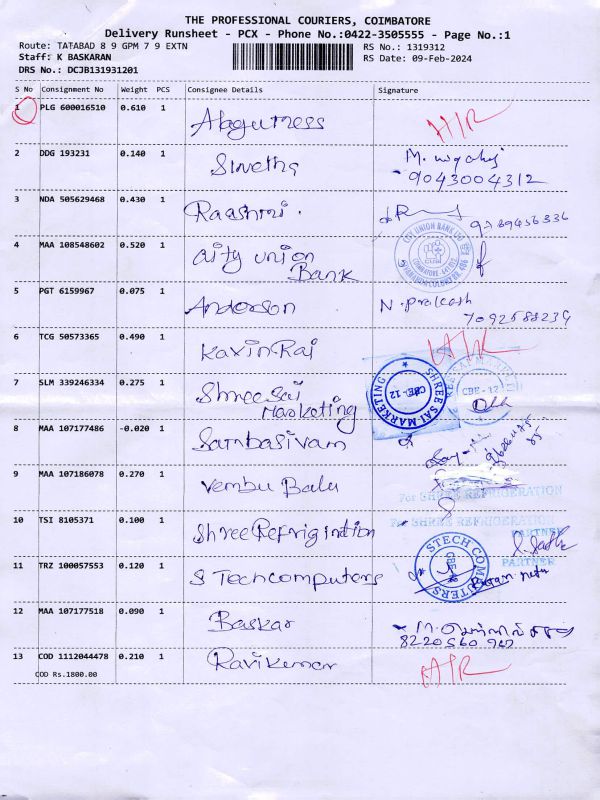 THE PROFESSIONAL COURIERS, COIMBATORE
Delivery Runsheet - PCX - Phone No.:0422-3505555 - Page No.:1
Route: TATABAD 8 9 GPM 7 9 EXTN RS No.: 1319312
Staff: K BASKARAN RS Date: 09-Feb-2024
DRS No.: DCJB131931201
S No Consignment No Weight PCS Consignee Details Signature
1 PLG 600016510 0.610 1 H/R
2 DDG 193231 0.140 1 Swetha M.
9043004312
3 NDA 505629468 0.430 1 Raashmi. 9789456336
4 MAA 108548602 0.520 1 City union
Bank
CITY UNION BANK LTD
5 PGT 6159967 0.075 1 Anderson N. prakash
7092588234
6 TCG 50573365 0.490 1 KavinRaj H/R
7 SLM 339246334 0.275 1 Shree sai
Marketing
SHREE SAI MARKETING CBE-12
CBE - 12
8 MAA 107177486 -0.020 1 Sambasivam
9 MAA 107186078 0.270 1 Vembu Balu
For SHREE REFRIGERATION
10 TSI 8105371 0.100 1 Shree Refrigiration
For SHREE REFRIGERATION
PARTNER
PARTNER
11 TRZ 100057553 0.120 1 S Tech computers
STECH COMPUTERS CBE
12 MAA 107177518 0.090 1 Baskar M.
8220560
13 COD 1112044478 0.210 1 Ravikumar H/R
COD Rs.1800.00